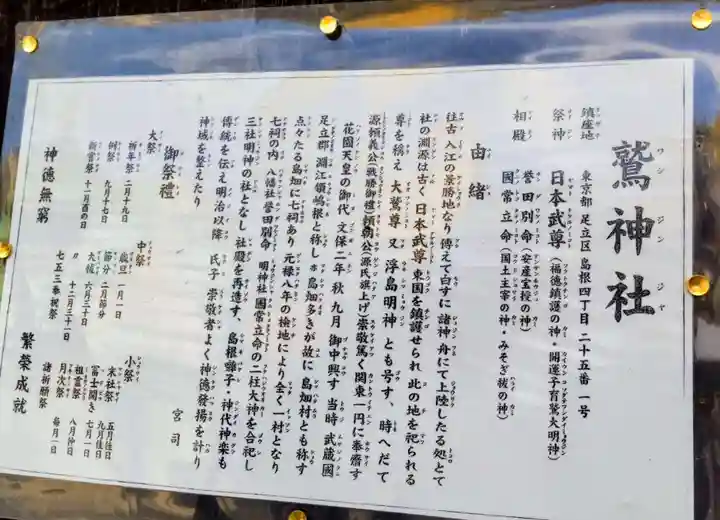 鷲神社
鎮座地 東京都足立区島根四丁目二十五番一号
祭神 日本武尊(福徳鎮護の神・開運子育鷲大明神)
相殿 誉田別命(安産宝授の神)
國常立命(国土主宰の神・みそぎ祓の神)
由緒
往古入江の景勝地なり傳えて曰すに諸神舟にて上陸したる処とて
社の淵源は古く日本武尊東国を鎮護せられ此の地を祀られる
尊を称え大鷲尊又浮島明神とも号す、時へだて
源頼義公戦勝御礼頼朝公源氏旗上げ崇敬篤く関東一円に奉齋す
花園天皇の御代文保二年秋九月御中興す当時武蔵國
足立郡渕江領嶋根と称し亦島畑多きが故に島畑村とも称す
点々たる島畑に七祠あり元禄八年の検地により全く一村となり
七祠の内八幡社誉田別命明神社國常立命の二柱大神を合祀し
三社明神の社となし社殿を再造す、島根囃子・神代神楽も
傳統を伝え明治以降氏子崇敬者よく神徳發揚を計り
神域を整えたり
宮司
御祭禮
大祭
祈年祭 二月十九日
例祭 九月十七日
新嘗祭 十一月酉の日
中祭
歳旦 一月一日
節分 二月節分
大祓 六月三十日
〃 十二月三十一日
七五三奉祝祭
小祭
末社祭 五月住日
九月住日
富士開き 七月一日
祖霊祭 八月仲日
月次祭 毎月一日
諸祈願祭
神徳無窮
繁榮成就